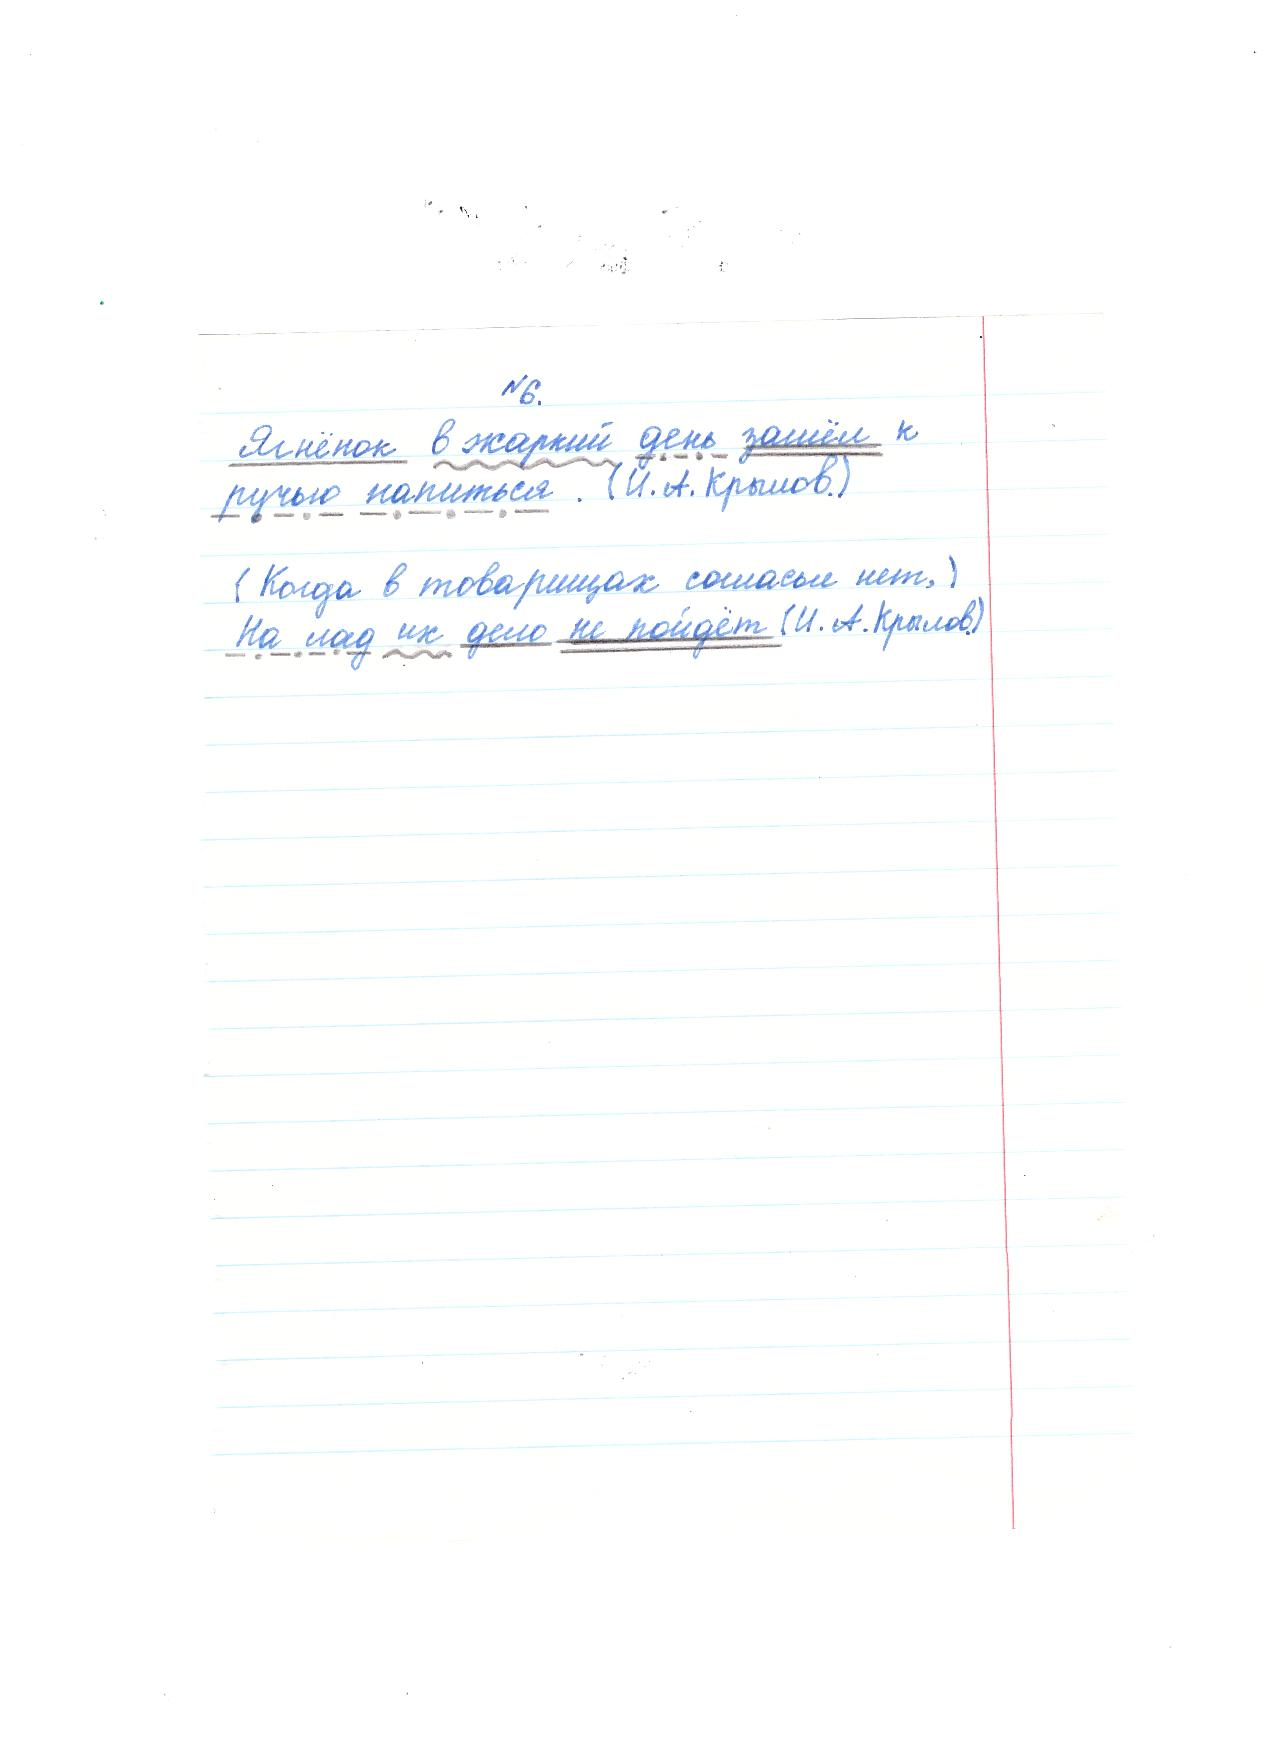 №6.
Ягнёнок в жаркий день зашёл к
ручью напиться. (И.А.Крылов.)
(Когда в товарищах согласья нет,)
На лад их дело не пойдёт (И.А.Крылов.)